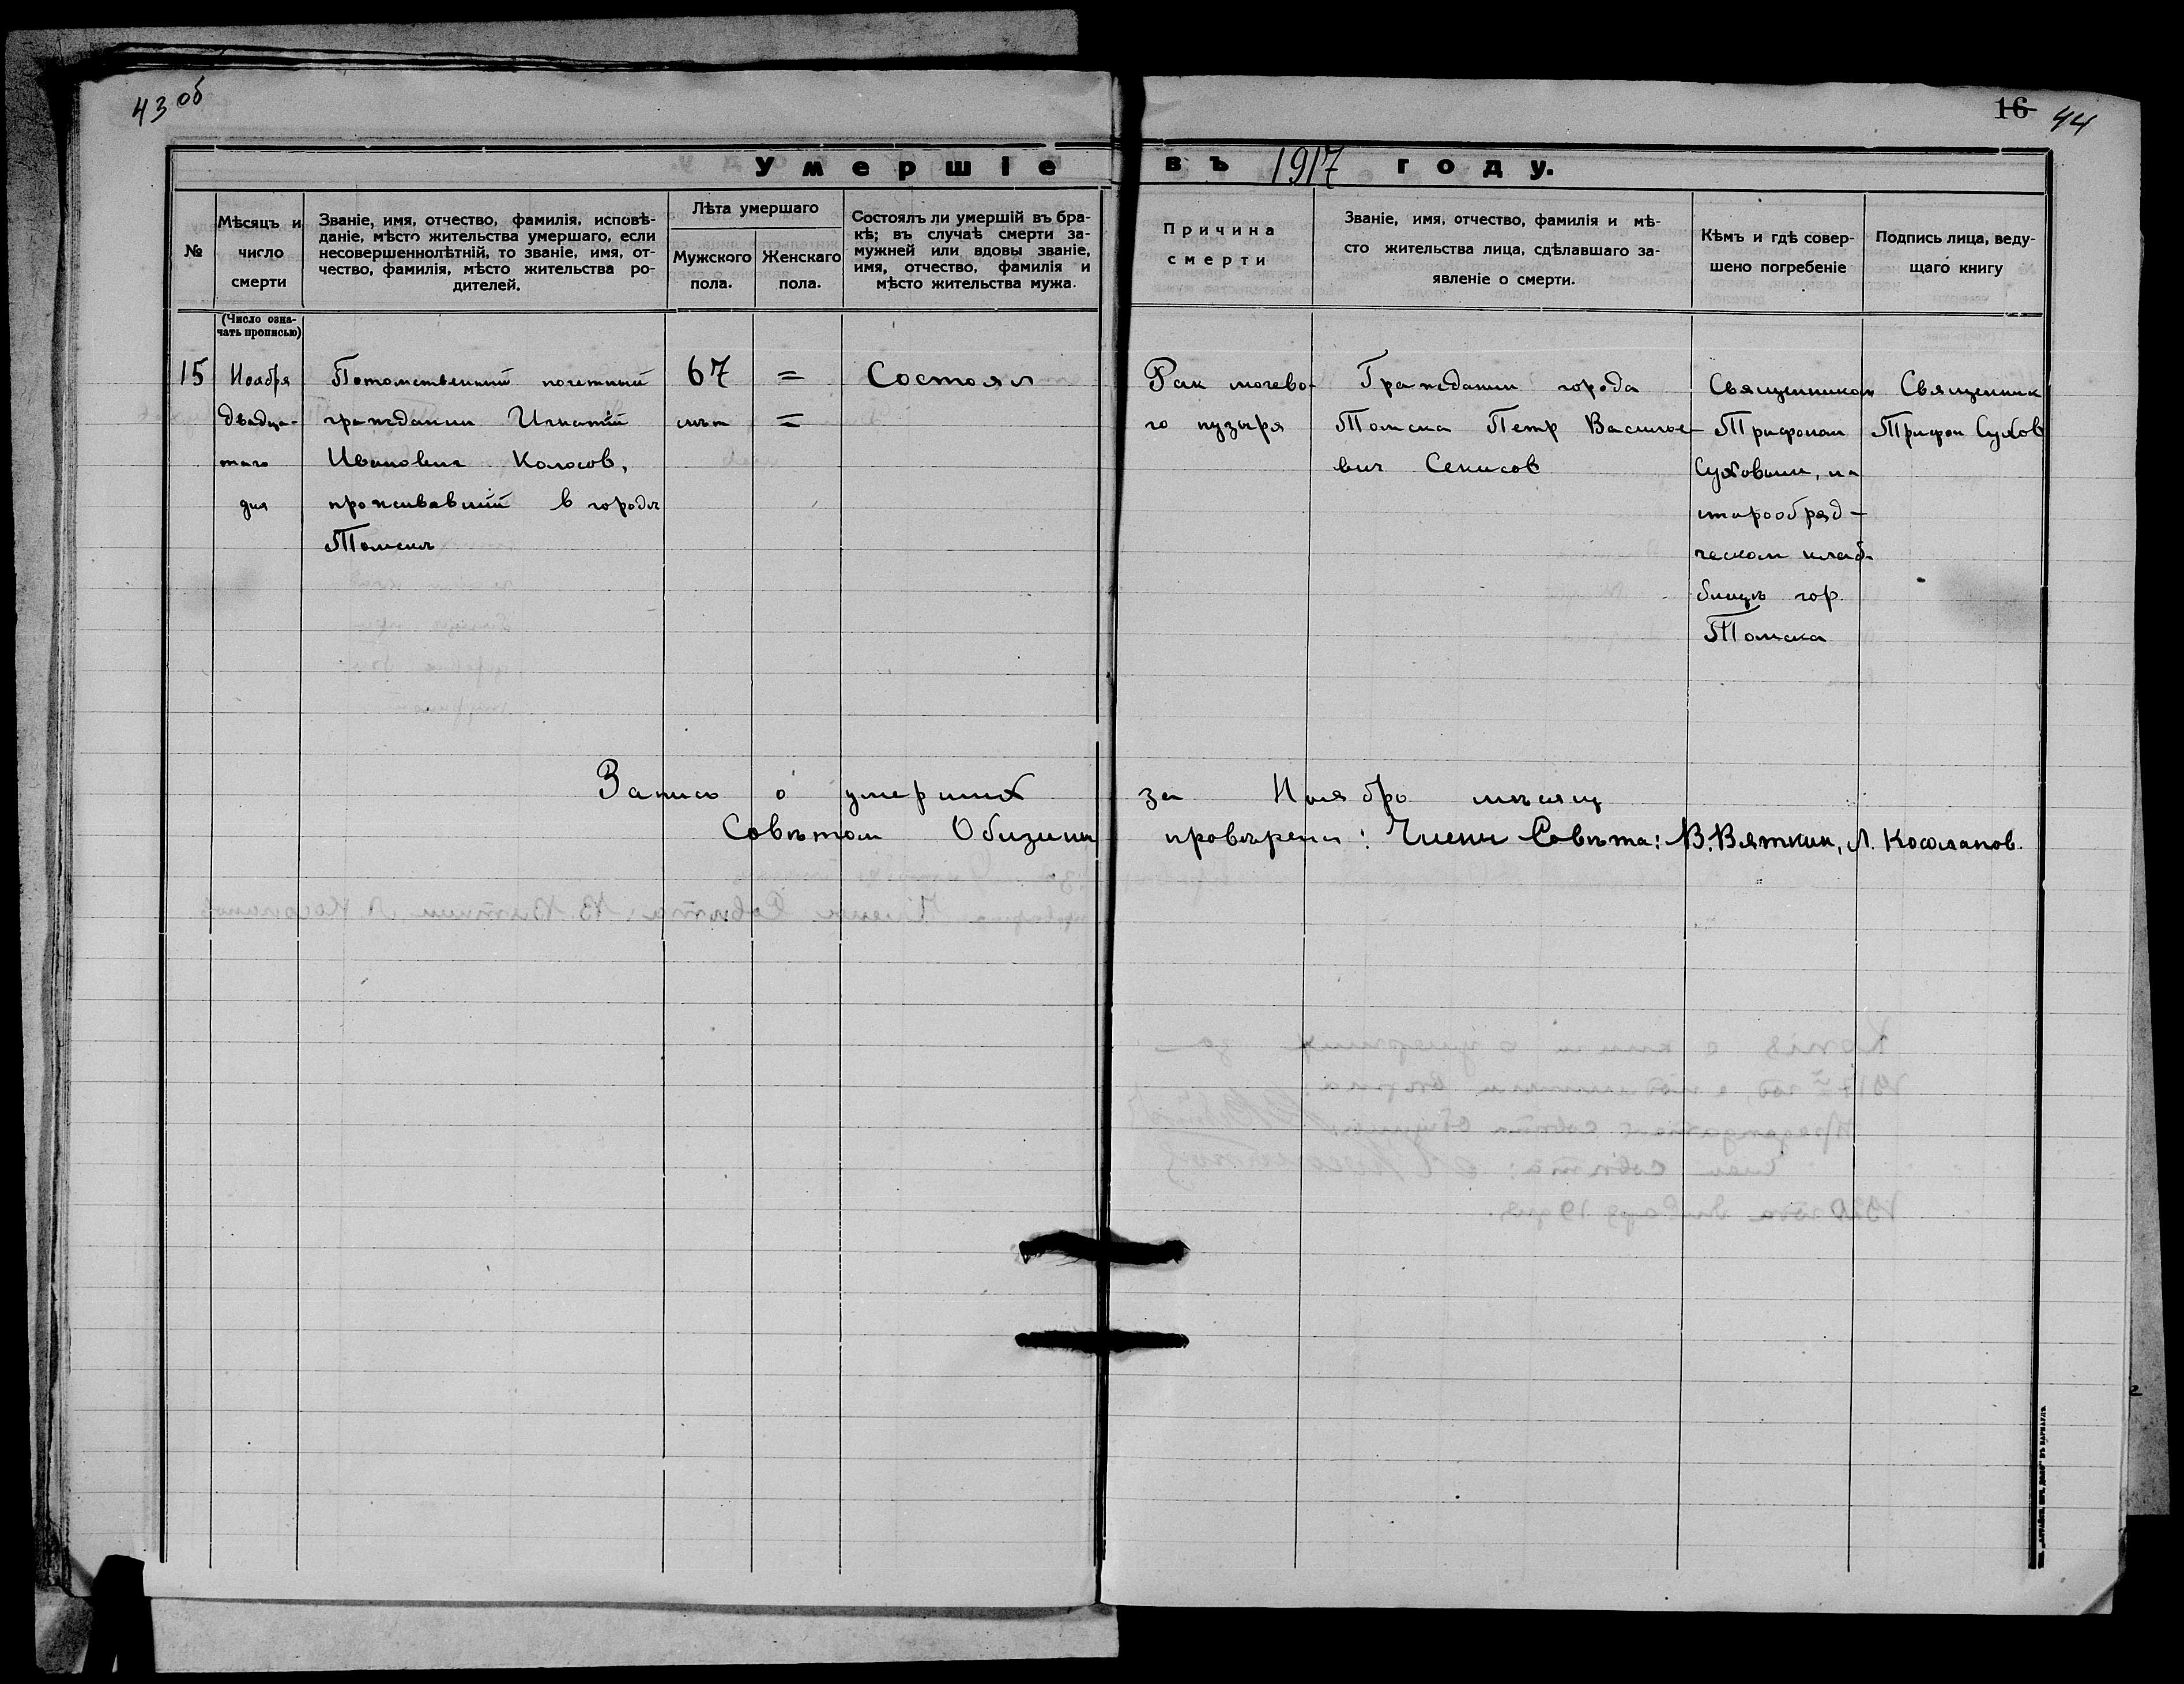 43 об
16 44
Умершіе въ 1917 году.
№
Мѣсяцъ и
число
смерти
(Число озна-
чать прописью)
Званіе, имя, отчество, фамилія, исповѣ-
даніе, мѣсто жительства умершаго, если
несовершеннолѣтній, то званіе, имя, от-
чество, фамилія, мѣсто жительства ро-
дителей.
Лѣта умершаго
Мужского
пола.
Женскаго
пола.
Состоялъ ли умершій въ бра-
кѣ; въ случаѣ смерти за-
мужней или вдовы званіе,
имя, отчество, фамилія и
мѣсто жительства мужа.
Причина
смерти
Званіе, имя, отчество, фамилія и мѣ-
сто жительства лица, сдѣлавшаго за-
явленіе о смерти.
Кѣмъ и гдѣ совер-
шено погребеніе
Подпись лица, веду-
щаго книгу
15
Ноября
двадца-
таго
дня
Потомственный почетный
гражданин Игнатій
Иванович Колосов,
проживавшій в городѣ
Томскѣ
67
лѣт
=
=
Состоял
Рак мочево-
го пузыря
Гражданин города
Томска Петр Василье-
вич Сенисов
Священником
Трифоном
Суховым, на
старообряд-
ческом клад-
бищѣ гор.
Томска
Священник
Трифон Сухов
Запись о умерших за Ноябрь мѣсяц
Совѣтом Общины провѣрена: Члены Совѣта: В. Вяткин, Л. Косолапов.